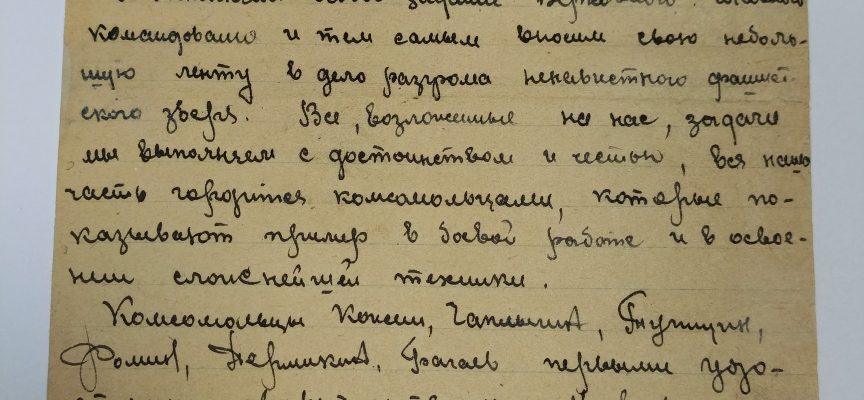 командовано и тем самым вносим свою неболь-
шую ленту в дело разгрома ненавистного фашист-
ского зверя. Все, возложенные на нас, задачи
мы выполняем с достоинством и честью, вся наша
часть гордится комсомольцами, которые по-
казывают пример в боевой работе и в освое-
нии сложнейшей техники.
Комсомольцы Чаплыгин,
Фомин, первыми